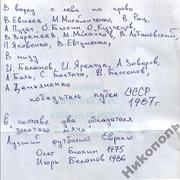 В верху с лева на право
В. Евсеев М. Михайличенко В. Рац,
А. Пузач, О. Блохин С. Журавлёв
В. Веремеев М. Михайлов В. Лобановский,
П. Яковенко, В. Евтушенко,
В низу
И. Беланов, И. Яремчук, А. Заваров,
А. Баль, С. Балтача, В. Бессонов,
А. Демьяненко
победитель кубка СССР
1987г.
в составе два обладателя
золотого мяча,
Лучший футболист Европы
Олег Блохин 1975
Игорь Беланов 1986
Никополь